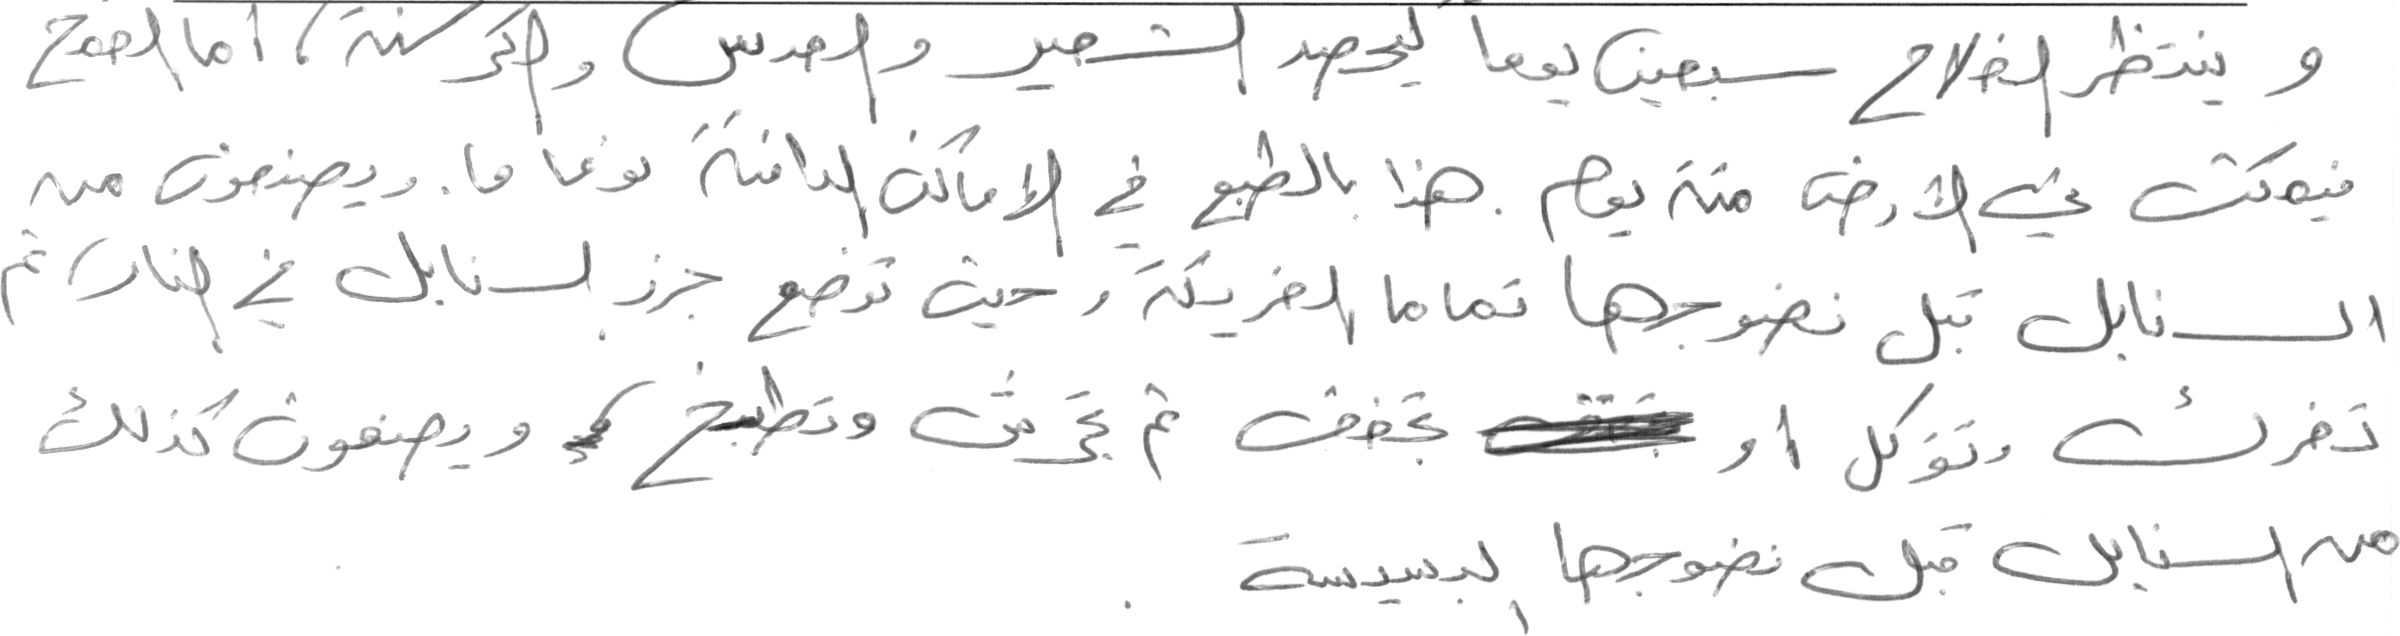 و ينتظر الفلاح سبعين يوما ليحصد الشعير و العدس والكرسنة، أما القمح
فيمكث في الأرض مئة يوم . هذا بالطبع في الاماكن الدافئة نوعا ما . ويصنعون من
السنابل قبل نضوجها تماما الفريكة ، حيث توضع جرز السنابل في النار ثم
تفرك وتؤكل او تجفف ثم تجرش وتطبخ ويصنعون كذلك
من السنابل قبل نضوجها البسيسة .